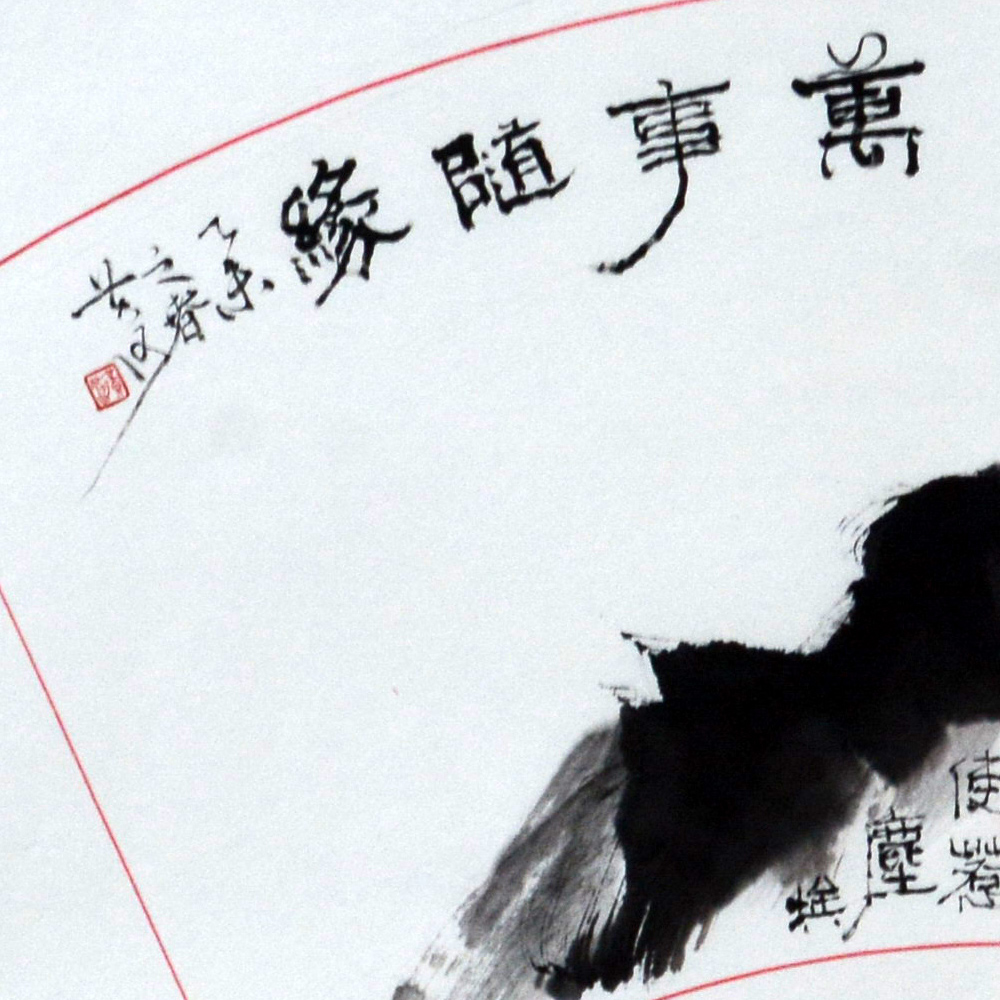 萬事隨緣
乙未
之春
使惹
塵
埃